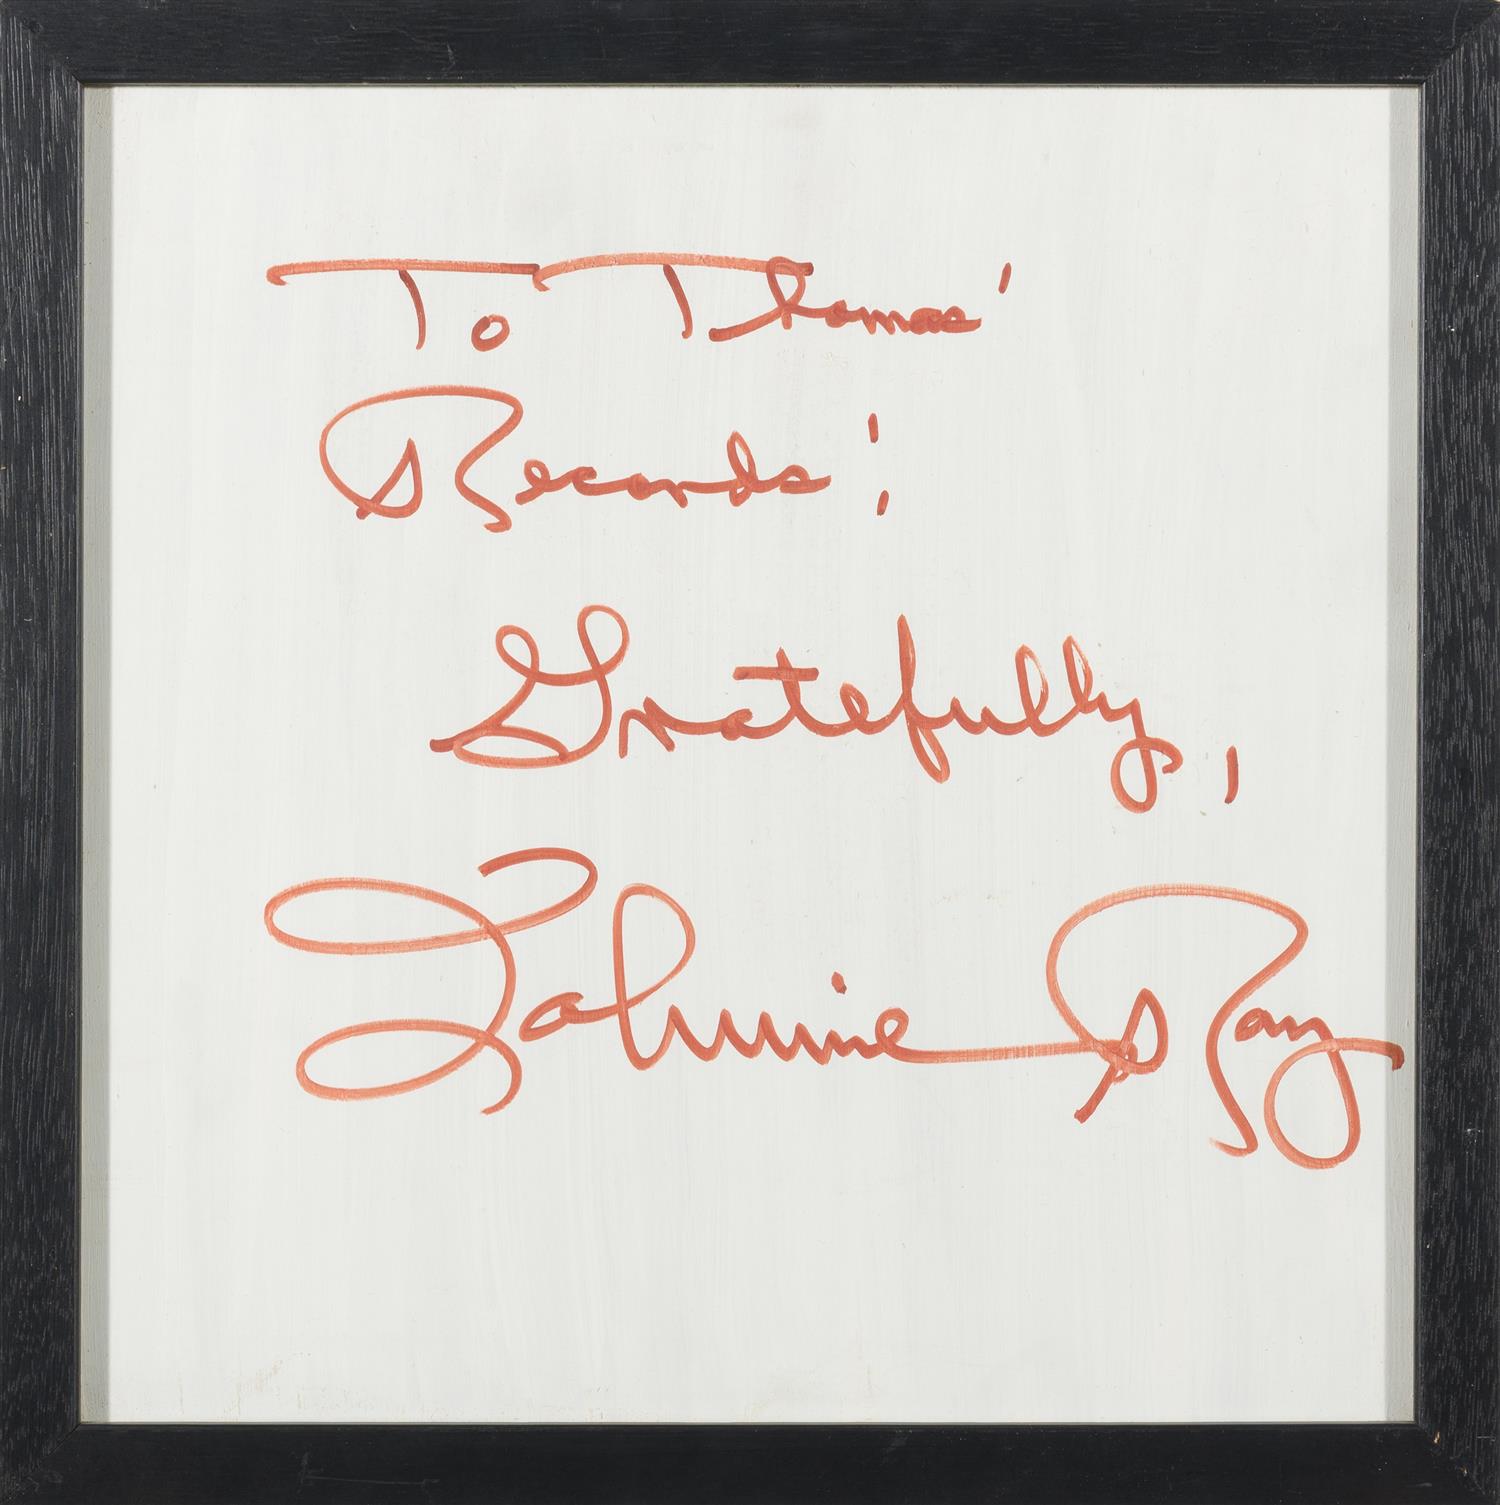 To Thomas'
Records!
Gratefully,
Ray